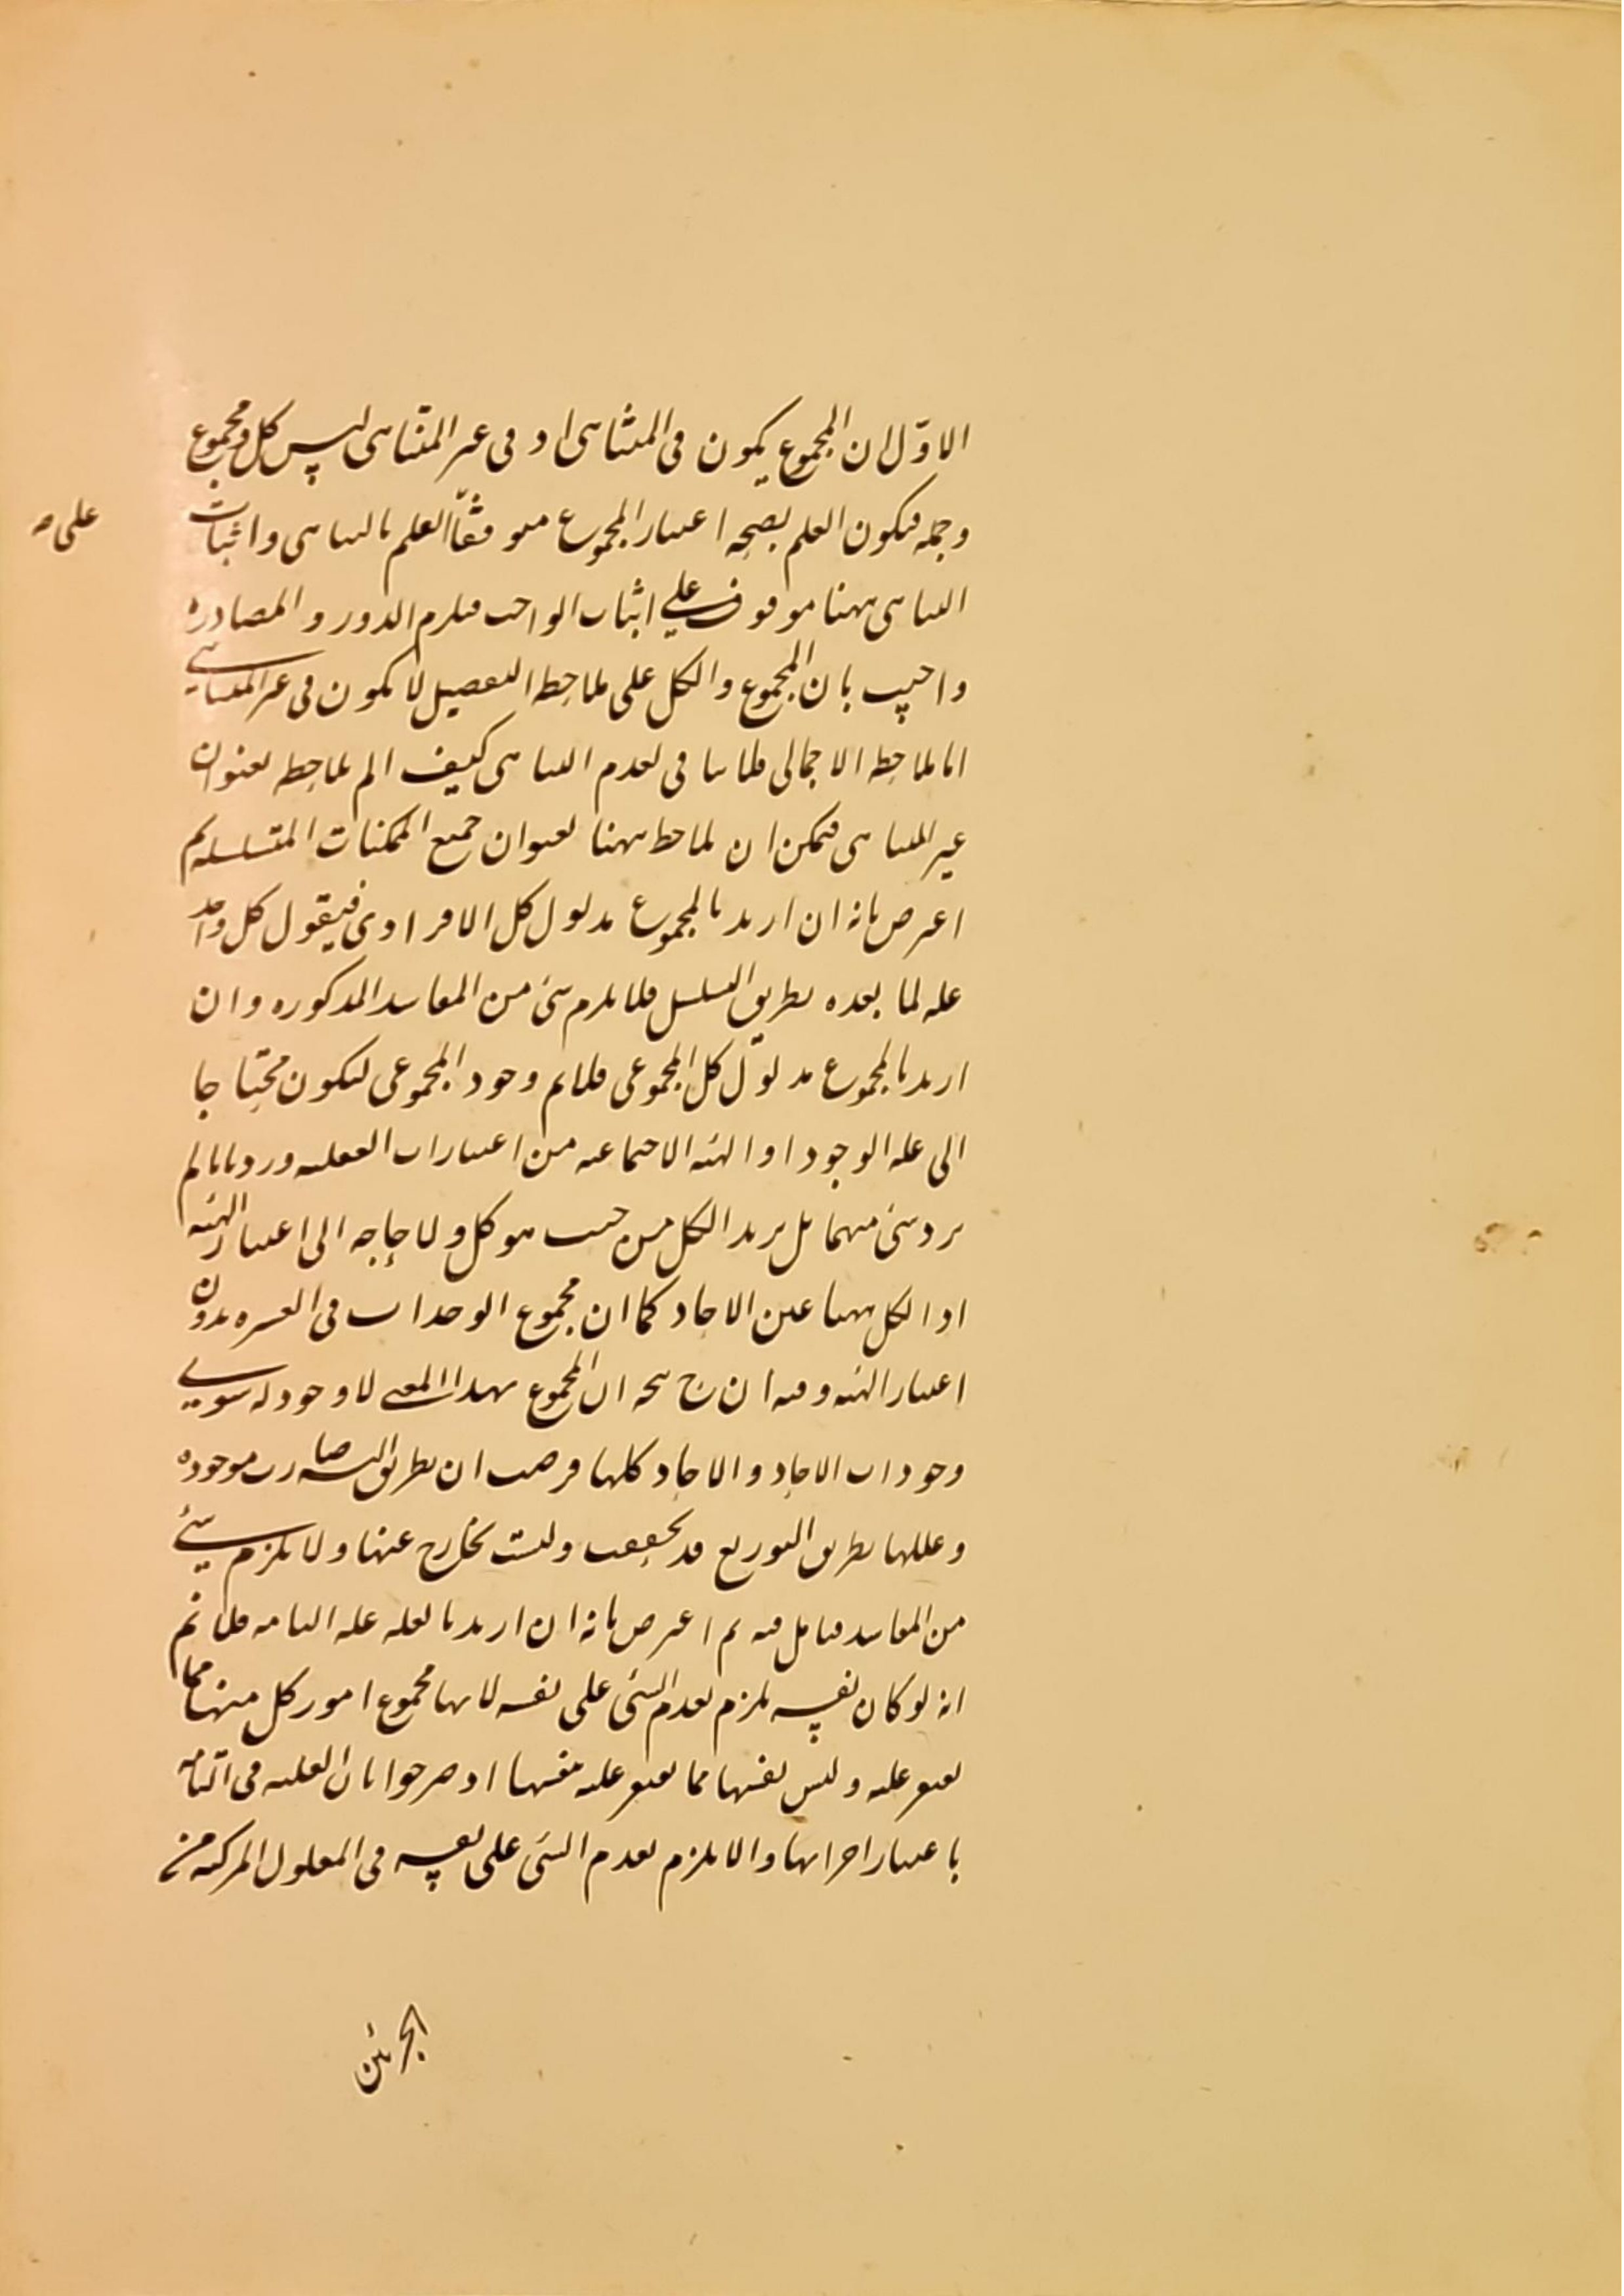 الاوّل ان المجموع يكون فى المتناهى اذ فى غير المتناهى ليس كل ومجموع
وجمله فيكون العلم بصحه اعتبار المجموع موقوفاً العلم بالتناهى واثبات
على صح
التناهى ههنا موقوف على اثبات الواجب فيلزم الدور والمصادره
واجيب بان المجموع والكل على ملاحظه التفصيل لا يكون فى غير المتناهى
اما ملاحظه الاجمالى فلا ينافى لعدم التناهى كيف الم يلاحظه بعنوان
غير المتناهى فيمكن ان يلاحظ ههنا بعنوان جميع الممكنات المتسلسله ثم
اعترض بانه ان اريد بالمجموع مدلول كل الافرادى فيقول كل واحد
عله لما بعده بطريق التسلسل فلا يلزم شئ من المفاسد المذكوره وان
اريد بالمجموع مدلول كل المجموعى فلا نم وجود المجموعى ليكون محتاجا
الى عله الوجود اذ الهيئه الاجتماعيه من اعتبارات العقليه ورد بانا لم
نرد شئ منهما بل نريد الكل من حيث هو كل ولا حاجه الى اعتبار الهيئه
اذ الكل ههنا عين الاحاد كما ان مجموع الوحدات فى العشره بدون
اعتبار الهيئه وفيه ان ح يتجه ان المجموع بهذا المعنى لا وجود له سوى
وجودات الاحاد والاحاد كلها فرضت ان بطريق التسلسل صارت موجوده
وعللها بطريق التوزيع قد تحققت وليست بخارج عنها ولا يلزم شئ
من المفاسد فتامل فيه ثم اعترض بانه ان اريد بالعله عله التامه فلا نم
انه لو كان نفسه يلزم تقدم الشئ على نفسه لانها مجموع امور كل منها مما
يفتقر عليه وليس نفسها مما يفتقر عليه نفسها اذ صرحوا بان العليه فى التامه
باعتبار اجزائها والا يلزم تقدم الشئ على نفسه فى المعلول المركبه من
الجزئين